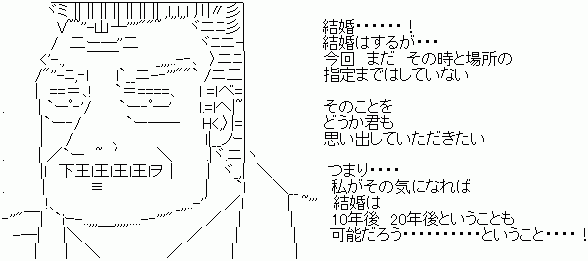 結婚‥‥‥！
結婚はするが‥‥
今回　まだ　その時と場所の
指定まではしていない
そのことを
どうか君も
思い出していただきたい
つまり‥‥
私がその気になれば
結婚は
10年後　20年後ということも
可能だろう‥‥‥‥‥ということ‥‥！